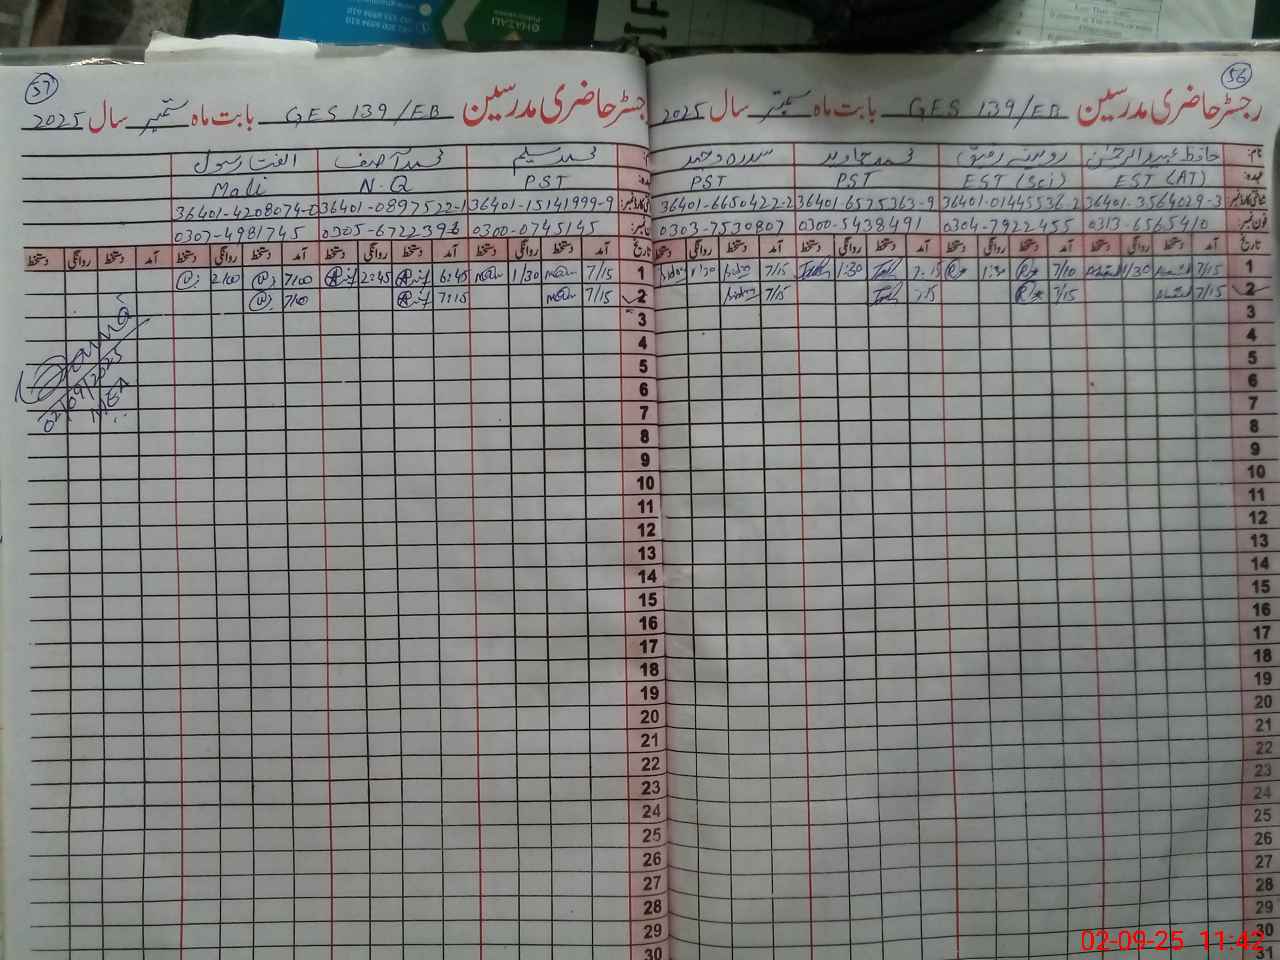 56
رجسٹر حاضری مدرسین GES 139/EB بابت ماه ستمبر سال 2025
نام: حافظ عبدالرحمٰن روبینہ رفیق محمد جاوید سدره وحید
عہدہ: EST (AT) EST (Sci) PST PST
36401-3564029-3 36401-01445536-2 36401-6575363-9 36401-6650422-2
فون نمبر: 0313-6565410 0304-7922455 0300-5438491 0303-7530807
تاریخ آمد دستخط روانگی دستخط آمد دستخط روانگی دستخط آمد دستخط روانگی دستخط آمد دستخط روانگی دستخط
1 7/15 1/30 7/10 1:30 7:15 1:30 7/15 1:30
2 7/15 7/15 :15 7/15
3
4
5
6
7
8
9
10
11
12
13
14
15
16
17
18
19
20
21
22
23
24
25
26
27
28
29
30
31
57
رجسٹر حاضری مدرسین GES 139/EB بابت ماه ستمبر سال 2025
محمد سلیم محمد آصف الفت رسول
PST N.Q Mali
36401-15141999-9 36401-0897522-1 36401-4208074-0
0300-0745145 0305-6722396 0307-4981745
تاریخ آمد دستخط روانگی دستخط آمد دستخط روانگی دستخط آمد دستخط روانگی دستخط آمد دستخط روانگی دستخط
1 7/15 1/30 6:45 2:45 7/00 2/00
2 7/15 7:15 7/00
3
4
5
6
7
8
9
10
11
12
13
14
15
16
17
18
19
20
21
22
23
24
25
26
27
28
29
30
02/09/2025
MEA
GHAZALI
02-09-25 11:42